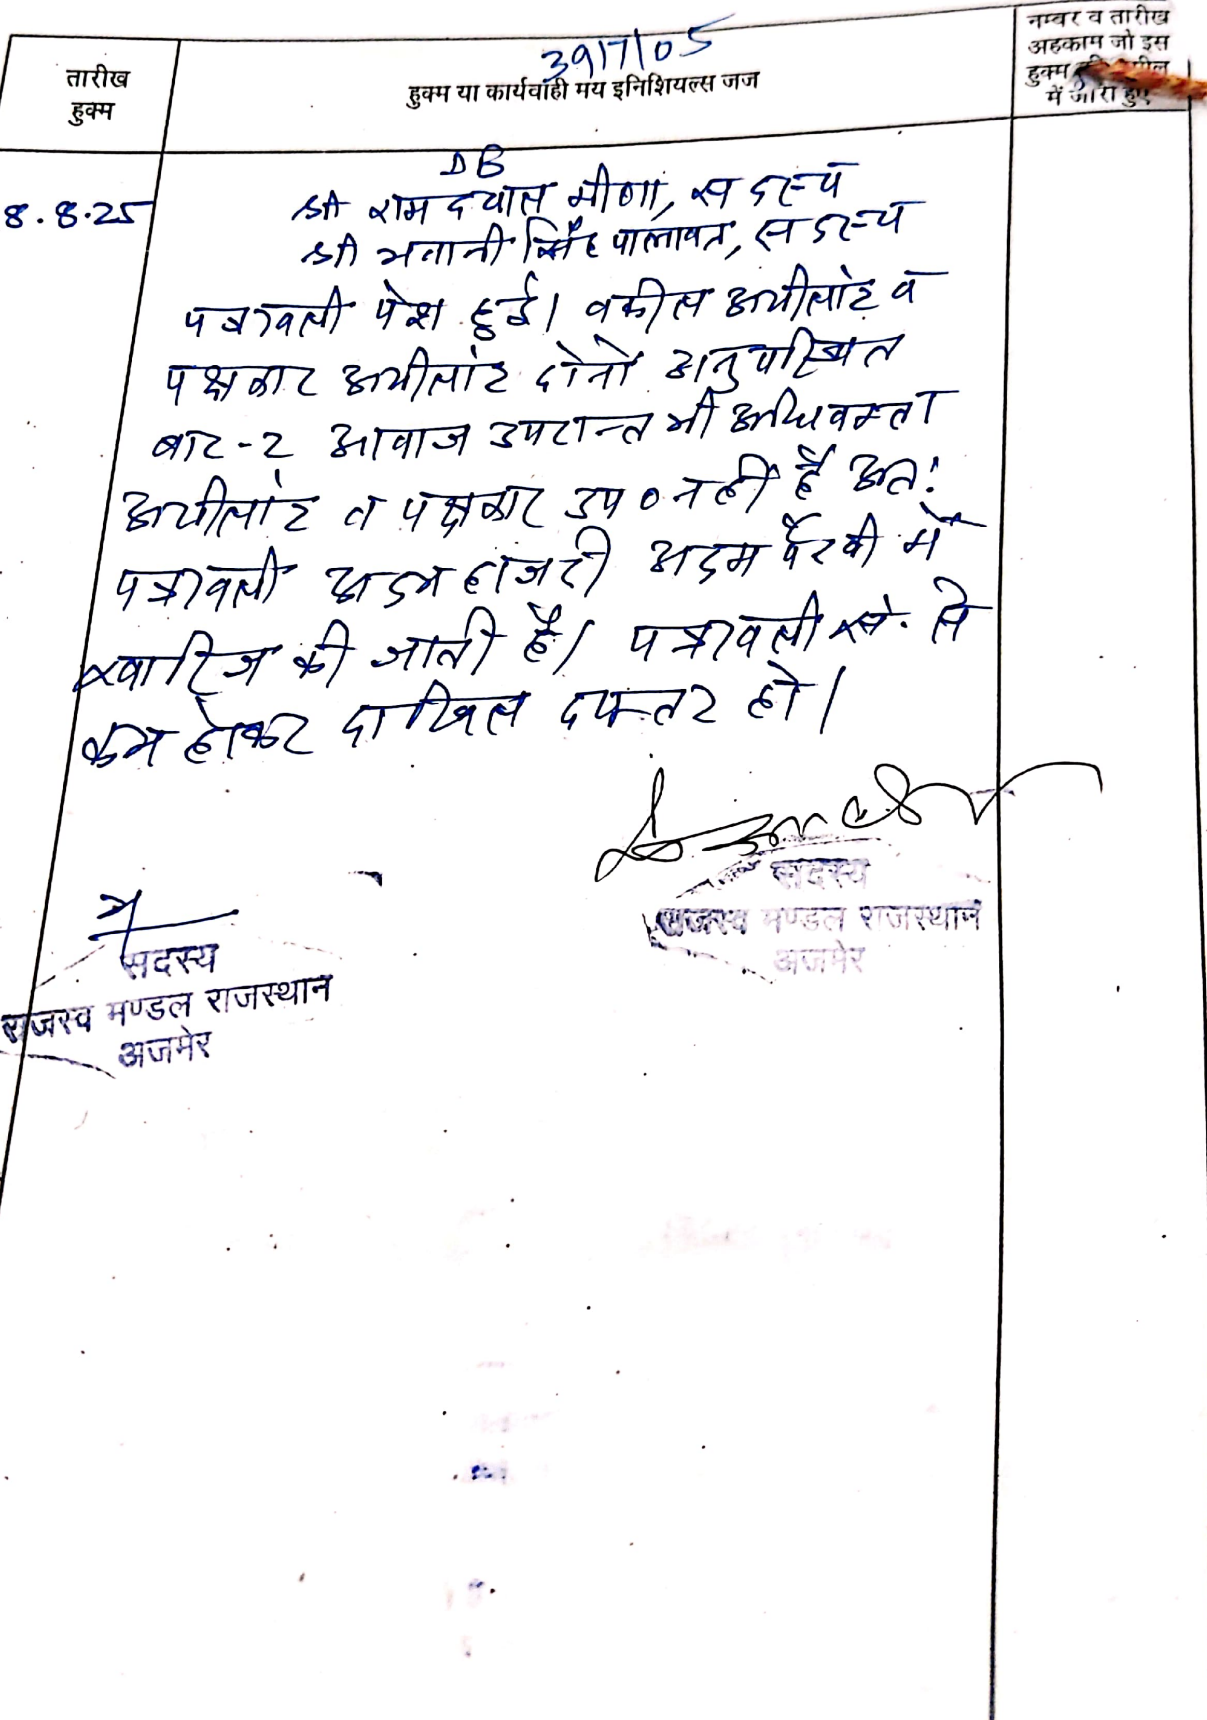 3917/05
तारीख
हुक्म
हुक्म या कार्यवाही मय इनिशियल्स जज
नम्बर व तारीख
अहकाम जो इस
हुक्म
में जारी हुए
8.8.25
DB
श्री रामदयाल मीणा, सदस्य
श्री भवानी सिंह पालावत, सदस्य
पत्रावली पेश हुई। वकील अपीलांट व
पक्षकार अपीलांट दोनो अनुपस्थित
बार-2 आवाज उपरान्त भी अधिवक्ता
अपीलांट व पक्षकार उप० नही है अतः
पत्रावली अदम हाजरी अदम पैरवी में
खारिज की जाती है। पत्रावली से
कम होकर दाखिल दफ्तर हो।
सदस्य
राजस्व मण्डल राजस्थान
अजमेर
सदस्य
राजस्व मण्डल राजस्थान
अजमेर